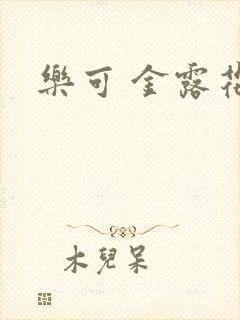 樂可 金露
木兒呆